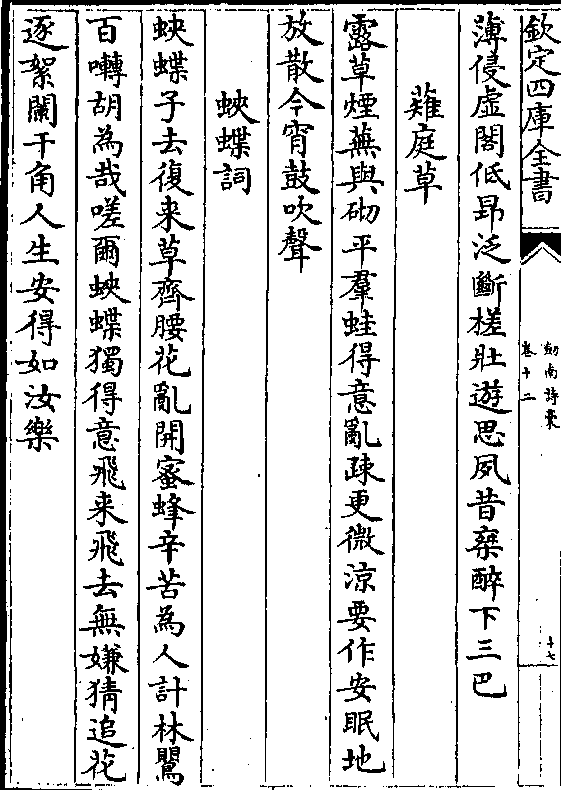 欽定四庫全書
劒南詩稾
卷十二
十七
薄侵虛閣低昻泛斷槎壯遊思夙昔椉醉下三巴
薙庭草
露草煙蕪與砌平羣蛙得意亂疎更微涼要作安眠地
放散今宵鼓吹聲
蛺蝶詞
蛺蝶子去復来草齊腰花亂開蜜蜂辛苦為人計林鸎
百囀胡為哉嗟爾蛺蝶獨得意飛来飛去無嫌猜追花
逐絮闌干角人生安得如汝樂